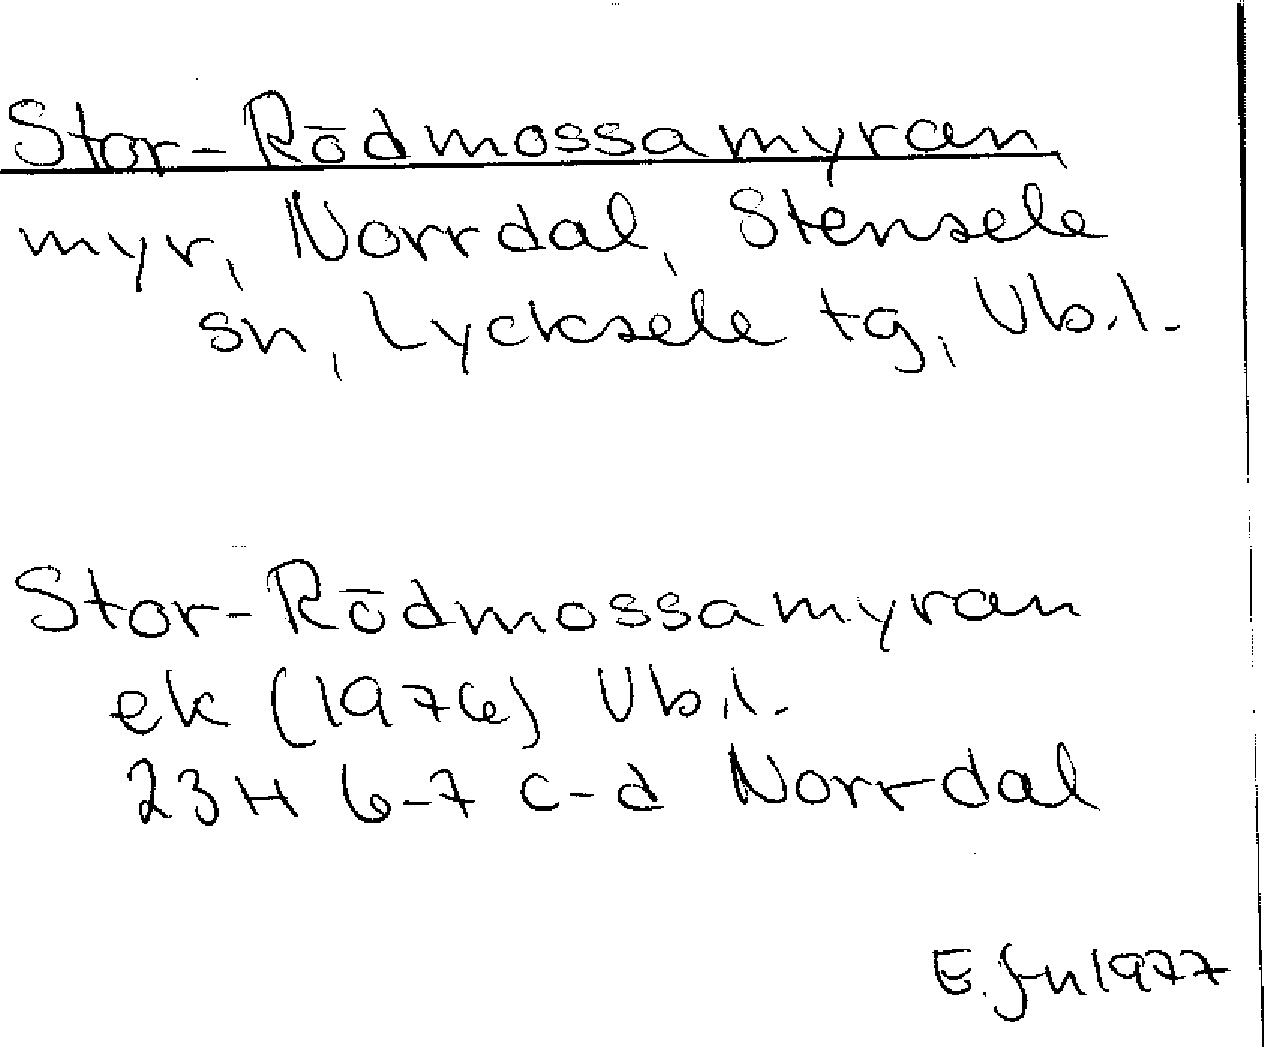 Stor-Rödmossamyran
myr, Norrdal, Stensele
sn, Lycksele tg, Vb.l.
Stor-Rödmossamyran
ek (1976) Vb.l.
23H 6-7 c-d Norrdal
E. 1977